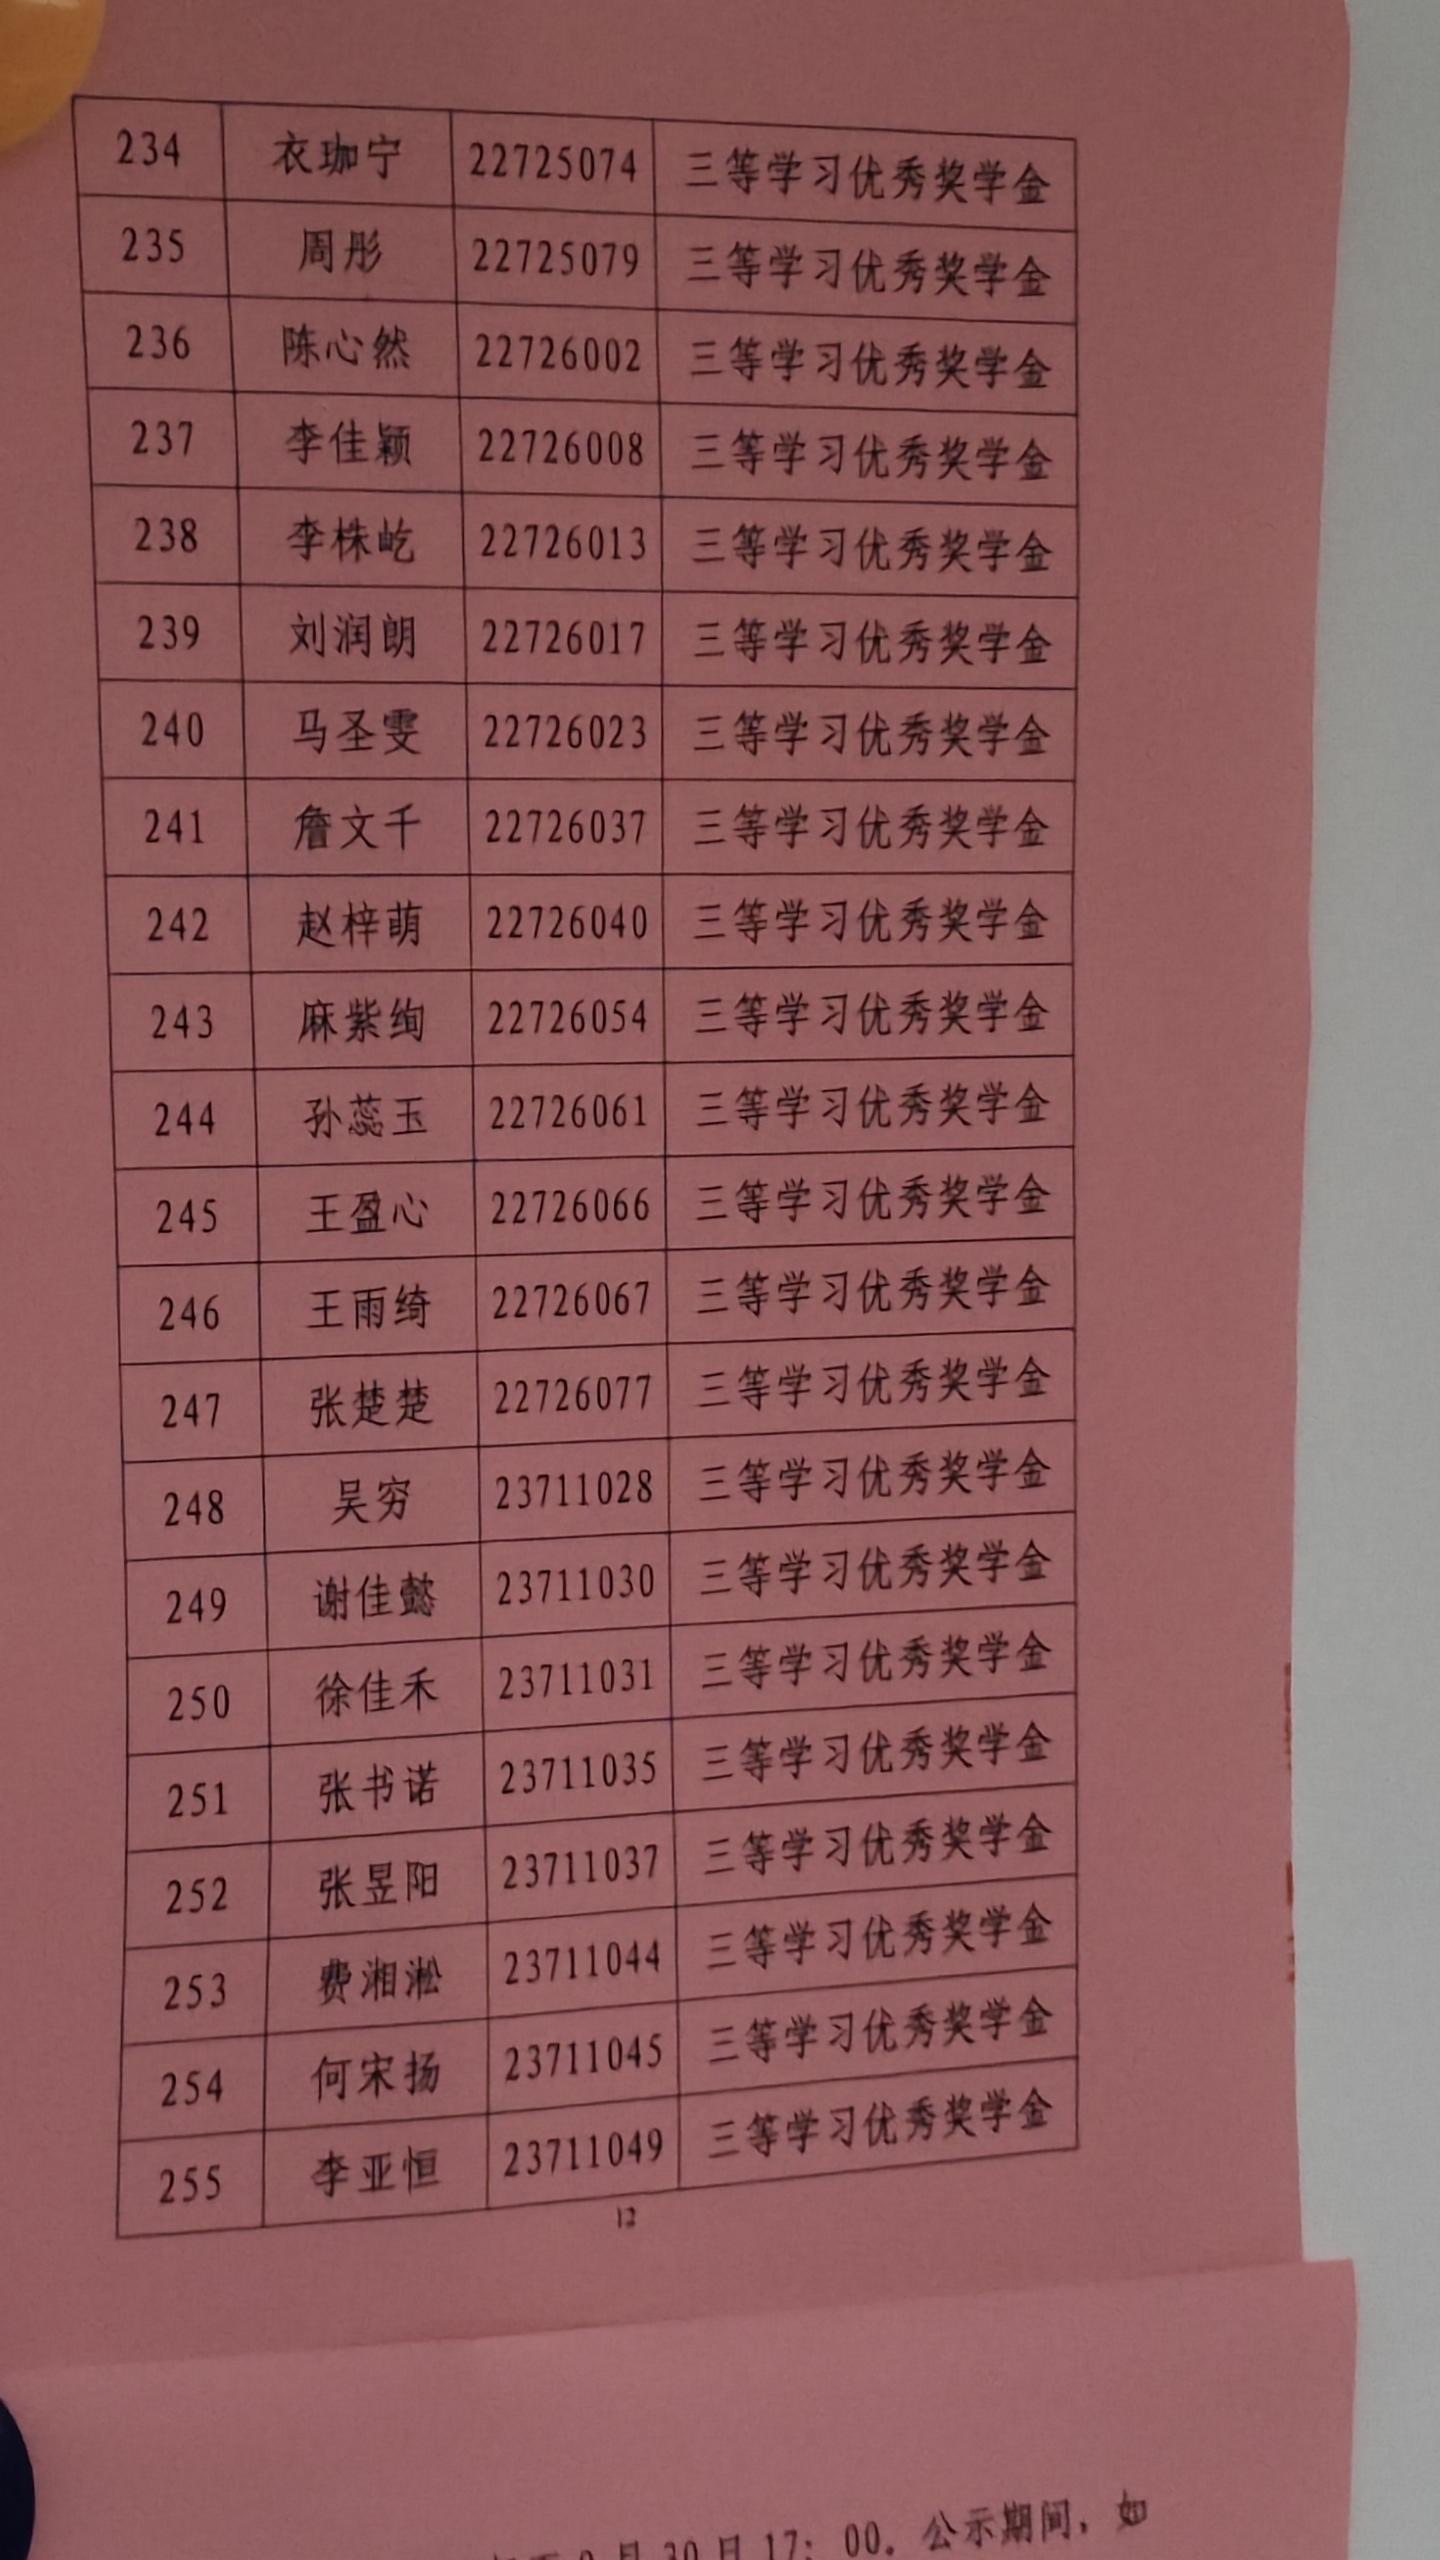 234 衣珈宁 22725074 三等学习优秀奖学金
235 周彤 22725079 三等学习优秀奖学金
236 陈心然 22726002 三等学习优秀奖学金
237 李佳颖 22726008 三等学习优秀奖学金
238 李株屹 22726013 三等学习优秀奖学金
239 刘润朗 22726017 三等学习优秀奖学金
240 马圣雯 22726023 三等学习优秀奖学金
241 詹文千 22726037 三等学习优秀奖学金
242 赵梓萌 22726040 三等学习优秀奖学金
243 麻紫绚 22726054 三等学习优秀奖学金
244 孙蕊玉 22726061 三等学习优秀奖学金
245 王盈心 22726066 三等学习优秀奖学金
246 王雨绮 22726067 三等学习优秀奖学金
247 张楚楚 22726077 三等学习优秀奖学金
248 吴穷 23711028 三等学习优秀奖学金
249 谢佳懿 23711030 三等学习优秀奖学金
250 徐佳禾 23711031 三等学习优秀奖学金
251 张书诺 23711035 三等学习优秀奖学金
252 张昱阳 23711037 三等学习优秀奖学金
253 费湘淞 23711044 三等学习优秀奖学金
254 何宋扬 23711045 三等学习优秀奖学金
255 李亚恒 23711049 三等学习优秀奖学金
12
月30日17：00。公示期间，如